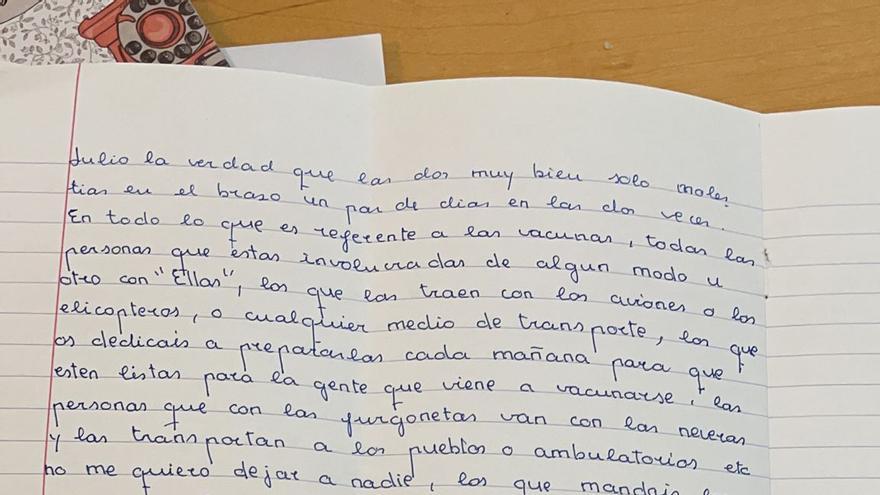 Julio la verdad que las dos muy bien solo moles
tias en el brazo un par de dias en las dos veces.
En todo lo que es referente a las vacunas, todas las
personas que estas involucradas de algun modo u
otro con "Ellas", los que las traen con los aviones o los
elicopteros, o cualquier medio de transporte, los que
os dedicais a prepararlas cada mañana para que
esten listas para la gente que viene a vacunarse, las
personas que con las furgonetas van con las neveras
y las transportan a los pueblos o ambulatorios etc
no me quiero dejar a nadie, los que mandais